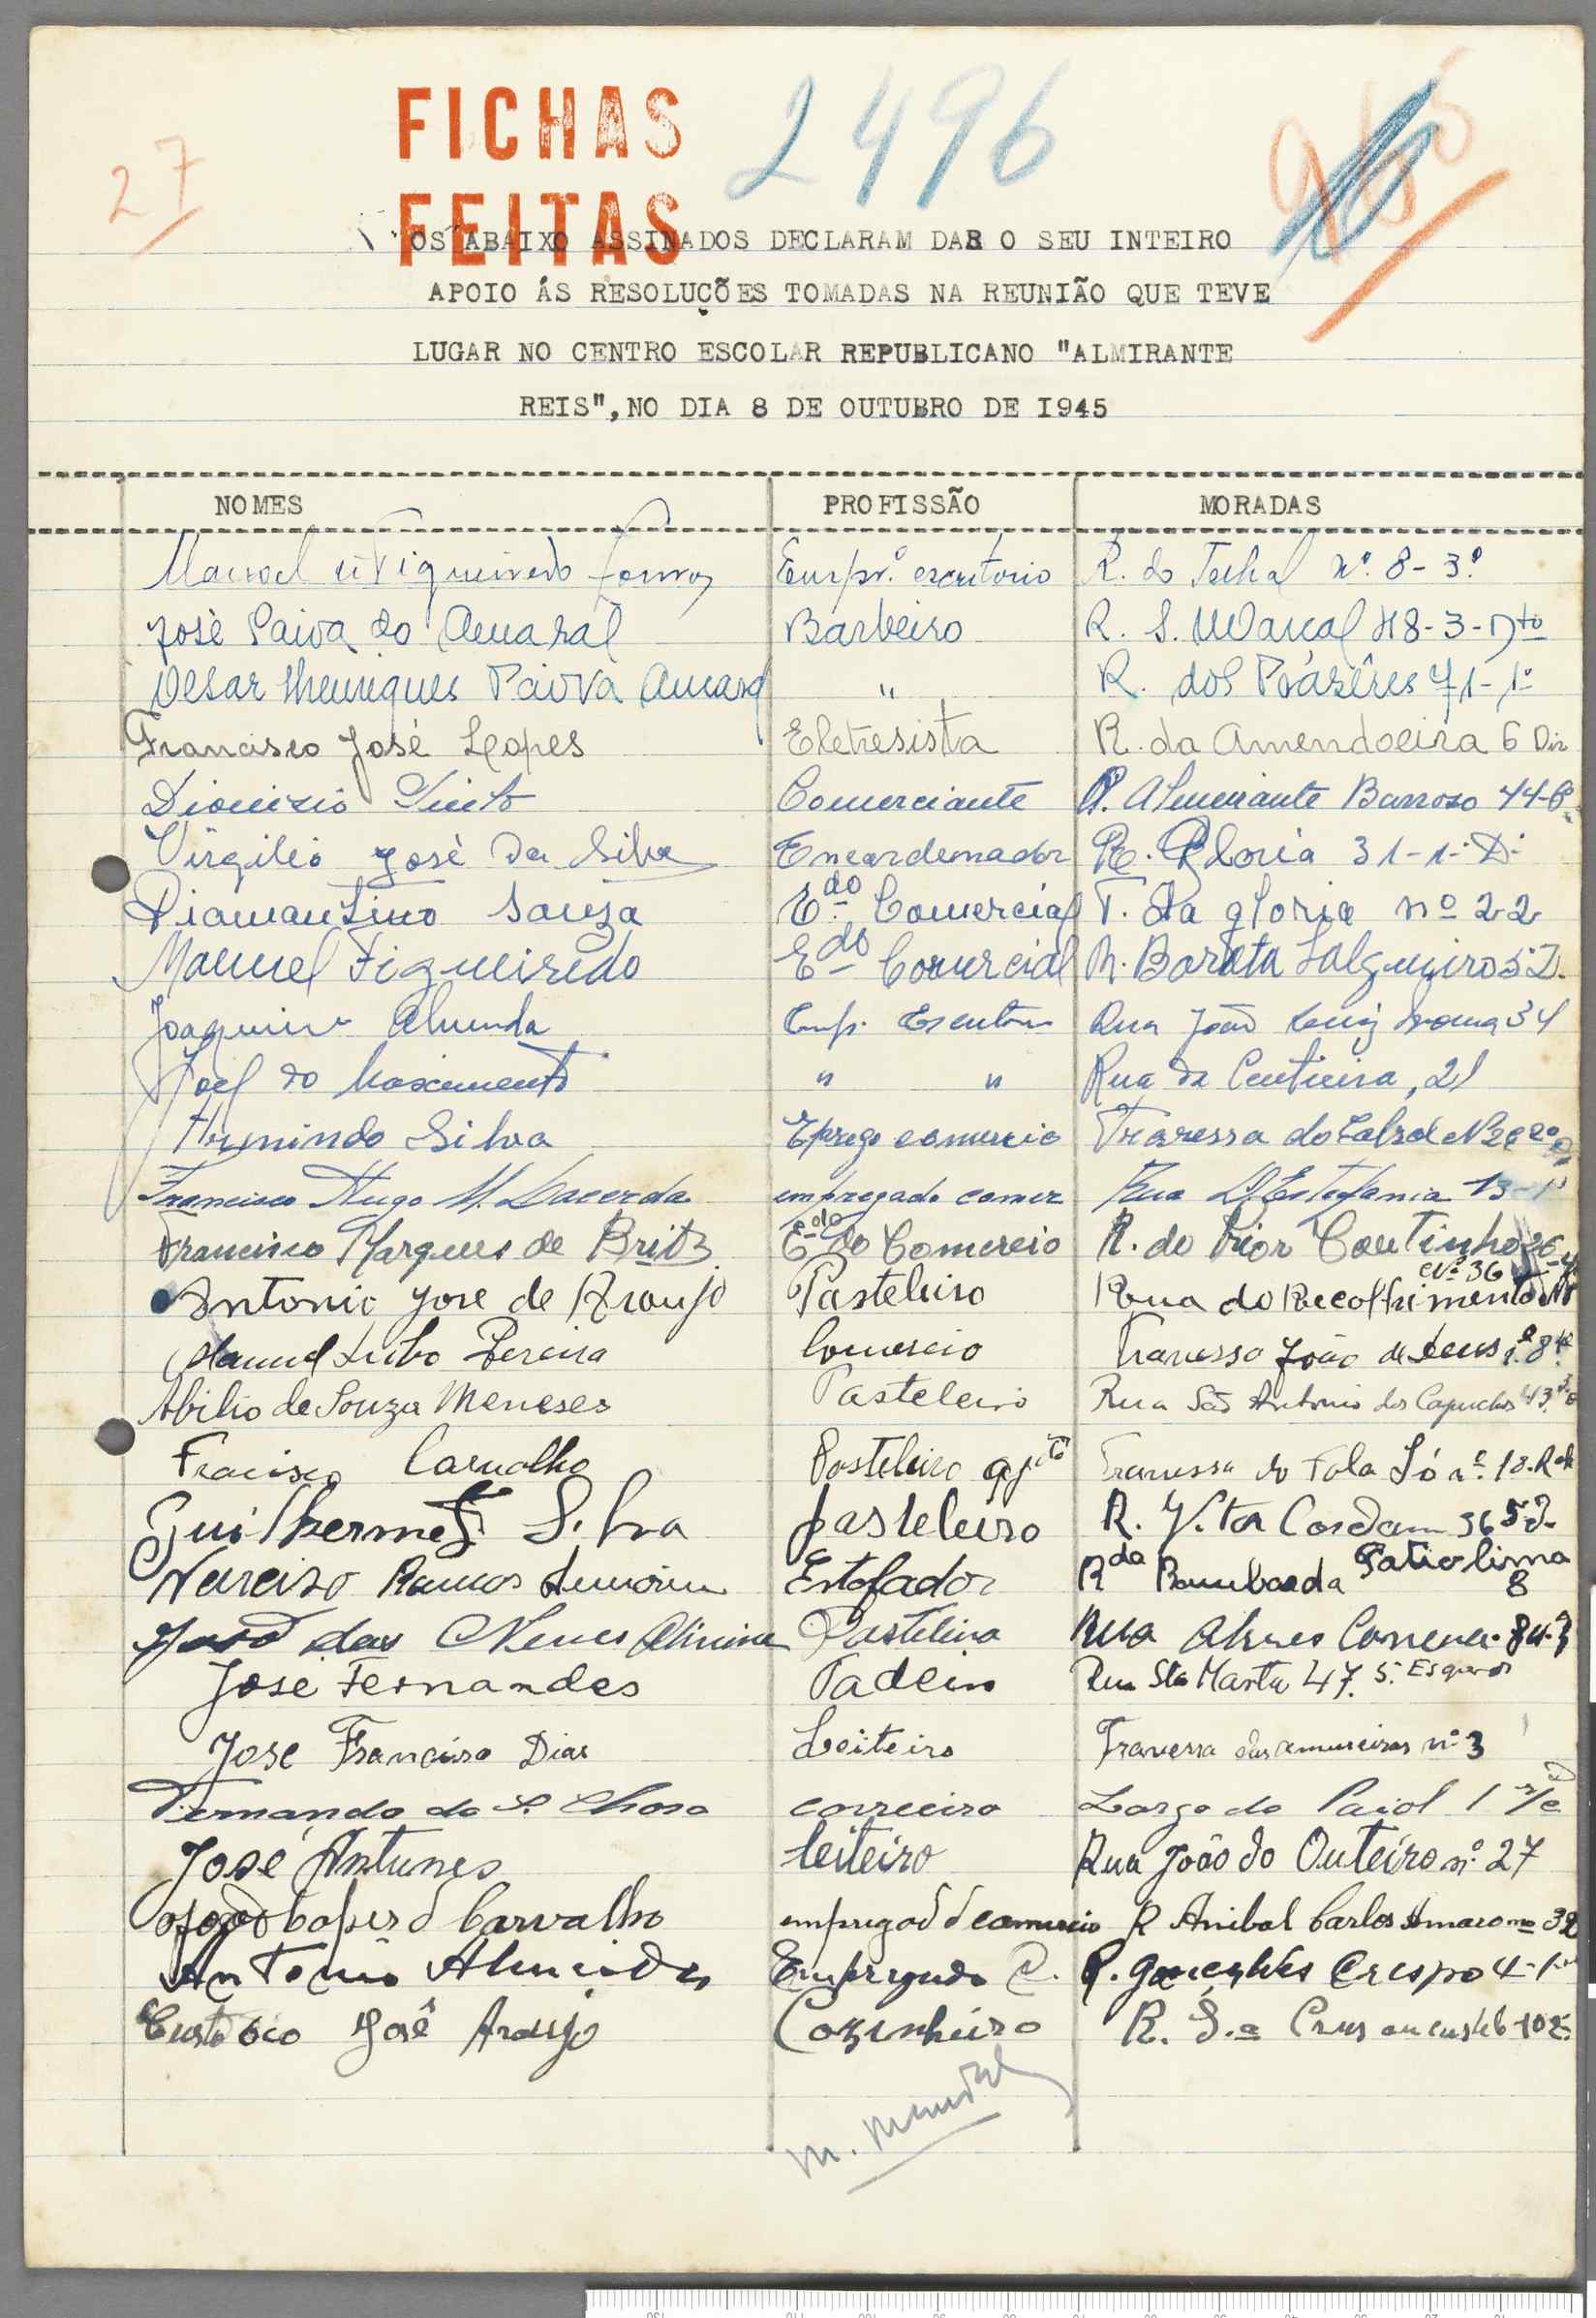 27
FICHAS
FEITAS
2496
OS ABAIXO ASSINADOS DECLARAM DAR O SEU INTEIRO
APOIO ÁS RESOLUÇÕES TOMADAS NA REUNIÃO QUE TEVE
LUGAR NO CENTRO ESCOLAR REPUBLICANO "ALMIRANTE
REIS", NO DIA 8 DE OUTUBRO DE I945
NOMES PROFISSÃO MORADAS
Manoel Figueiredo escritorio R. do Telhal Nº. 8 - 3º
José Paiva do Amaral Barbeiro R. S. Marçal 3 - Dto
Cesar Henriques Paiva Amaral " R. dos Prazêres 71-1º
Francisco José Lopes Eletresista R. da Amendoeira 6
Dionizio Comerciante R. Almirante Barroso 44
Virgilio José da Silva Encardenador R. Gloria 31-1º D.
Diamantino Souza Edo Comercial T. da gloria nº 22
Manuel Figueiredo Edo Comercial R. Barata Salgueiro
Joaquim Almeida Emp. Escritorio Rua João
Joel do Nascimento " " Rua da Centieira, 21
Hermindo Silva Eprego comercio Travessa do
Francisco Hugo M. Lacerda empregado comer Rua D. Estefania 13-1º
Francisco Marques de Brito Edo do Comercio R. do Prior Coutinho 26
Antonio José de Araujo Pasteleiro Rua do Recolhimento Nº 36
Manuel Pereira Comercio Travessa João de Deus
Abilio de Souza Meneses Pasteleiro Rua São Antonio dos Capuchos 43
Fracisco Carvalho Posteleiro Travessa do Fala Só nº. 18
Guilherme F. Silva pasteleiro R. Vitor Cordam 36 5º
Narciso Ramos Amorim Estofador R da Bombarda Patio lima 8
José das Neves Pasteleiro Rua Alves Correia 84
José Fernandes Padeiro Rua Sta Marta 47. 5º Esquerdo
José Francisco Dias Leiteiro Travessa das nº 3
Fernando da S. correeiro Largo do Paiol 1 r/c
José Antunes leiteiro Rua João do Outeiro nº 27
João Lopes d Carvalho empregad d comercio R Anibal Carlos Amaro nº
Antonio Almeida Empregado C. R. Gonçalves Crespo 4-1º
Custodio José Araujo Cozinheiro R.